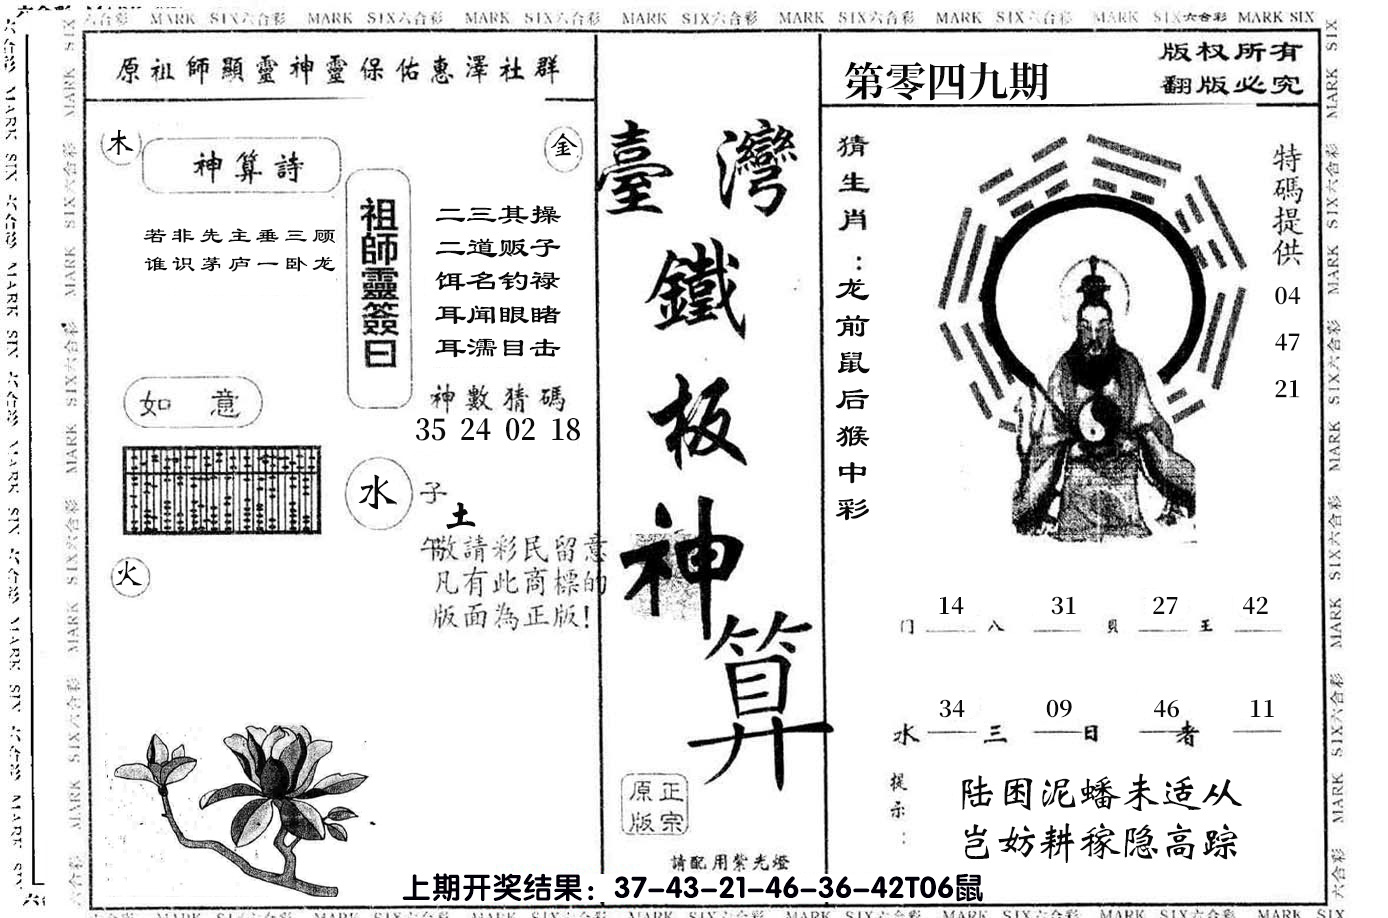 MARK SIX六合彩 MARK SIX六合彩 MARK SIX六合彩 MARK SIX六合彩 MARK SIX六合彩 MARK SIX六合彩 MARK SIX六合彩 MARK SIX
原祖師顯靈神靈保佑惠澤社群
木
神算詩
金
若非先主垂三顾
谁识茅庐一卧龙
祖師靈簽曰
二三其操
二道贩子
饵名钓禄
耳闻眼睹
耳濡目击
神數猜碼
35 24 02 18
如 意
水
子
土
午
火
敬請彩民留意
凡有此商標的
版面為正版!
臺灣
鐵
板
神
算
原版
正宗
請配用紫光燈
第零四九期
版权所有
翻版必究
猜生肖:龙前鼠后猴中彩
特碼提供
04
47
21
14 31 27 42
门 八 貝 王
34 09 46 11
水 三 日 者
提示:
陆困泥蟠未适从
岂妨耕稼隐高踪
上期开奖结果：37-43-21-46-36-42T06鼠